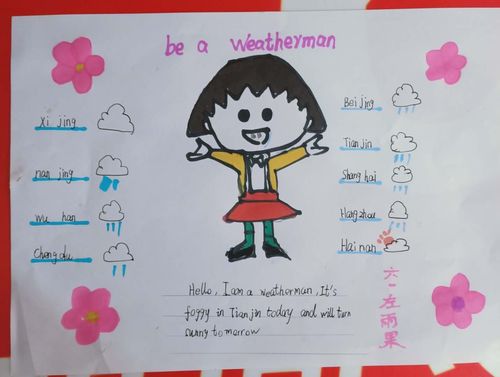 be a Weatherman
Xi jing
nan jing
Wu han
Cheng du
Bei jing
Tian jin
Shang hai
Hang zhou
Hai nan
Hello, I am a weatherman, It's
foggy in Tian jin today and will turn
sunny tomorrow
六一左雨果